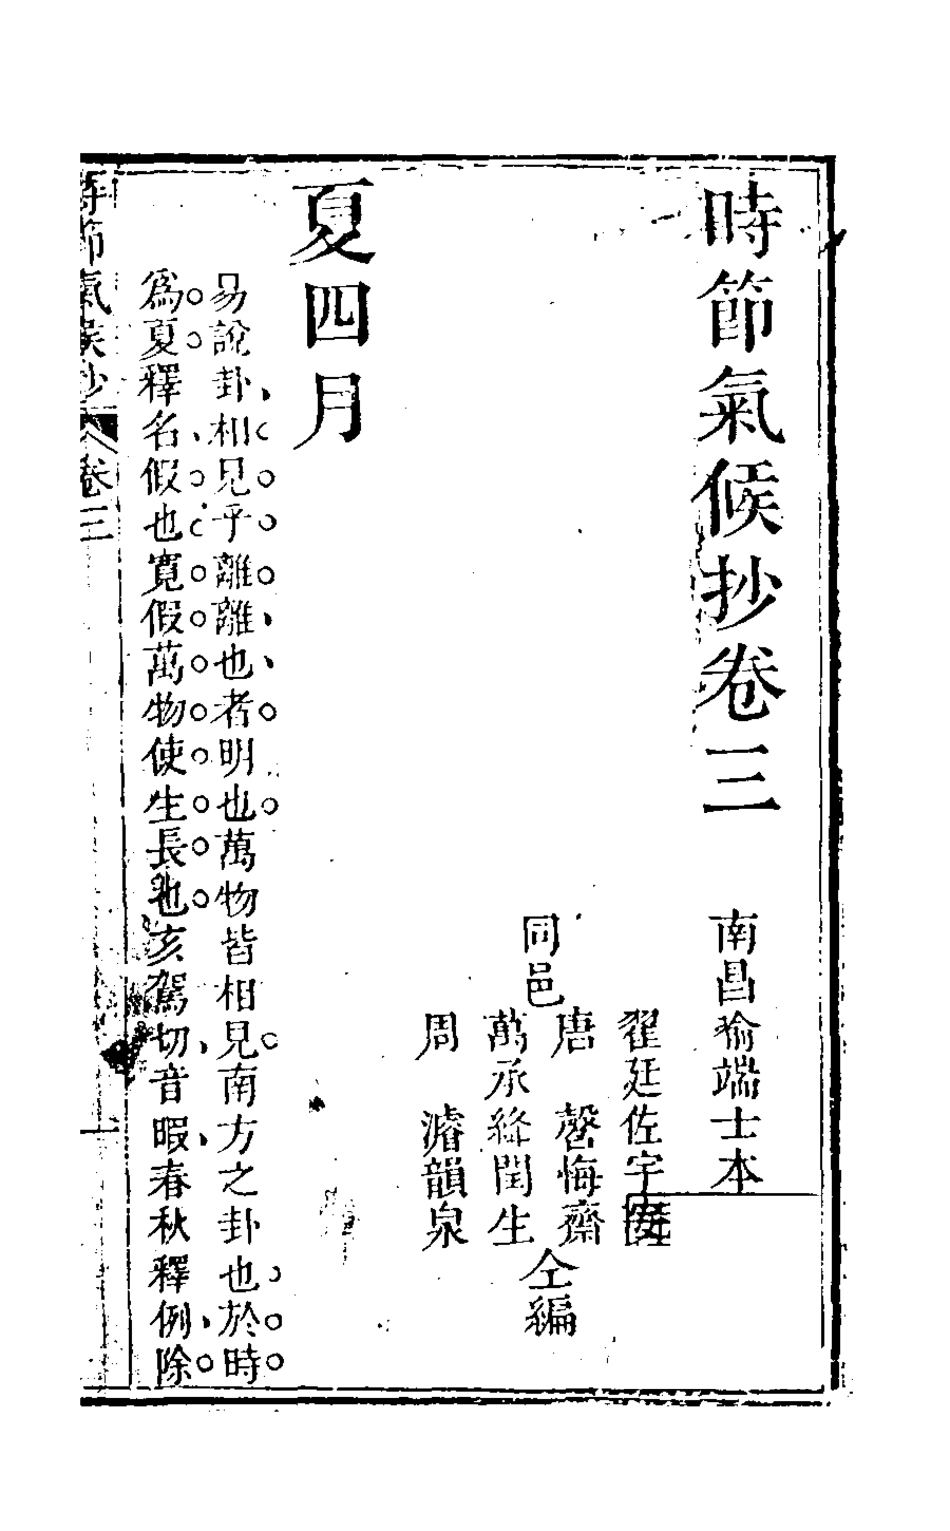 時節氣候抄卷三
南昌喻端士本
翟廷佐宇安
同邑
唐 磬悔齋
萬承絳閏生
周 濬韻泉
仝編
夏四月
易說卦相見乎離離也者明也萬物皆相見南方之卦也於時
爲夏釋名假也寬假萬物使生長也亥駕切音暇春秋釋例除
時節氣候抄 卷三 上